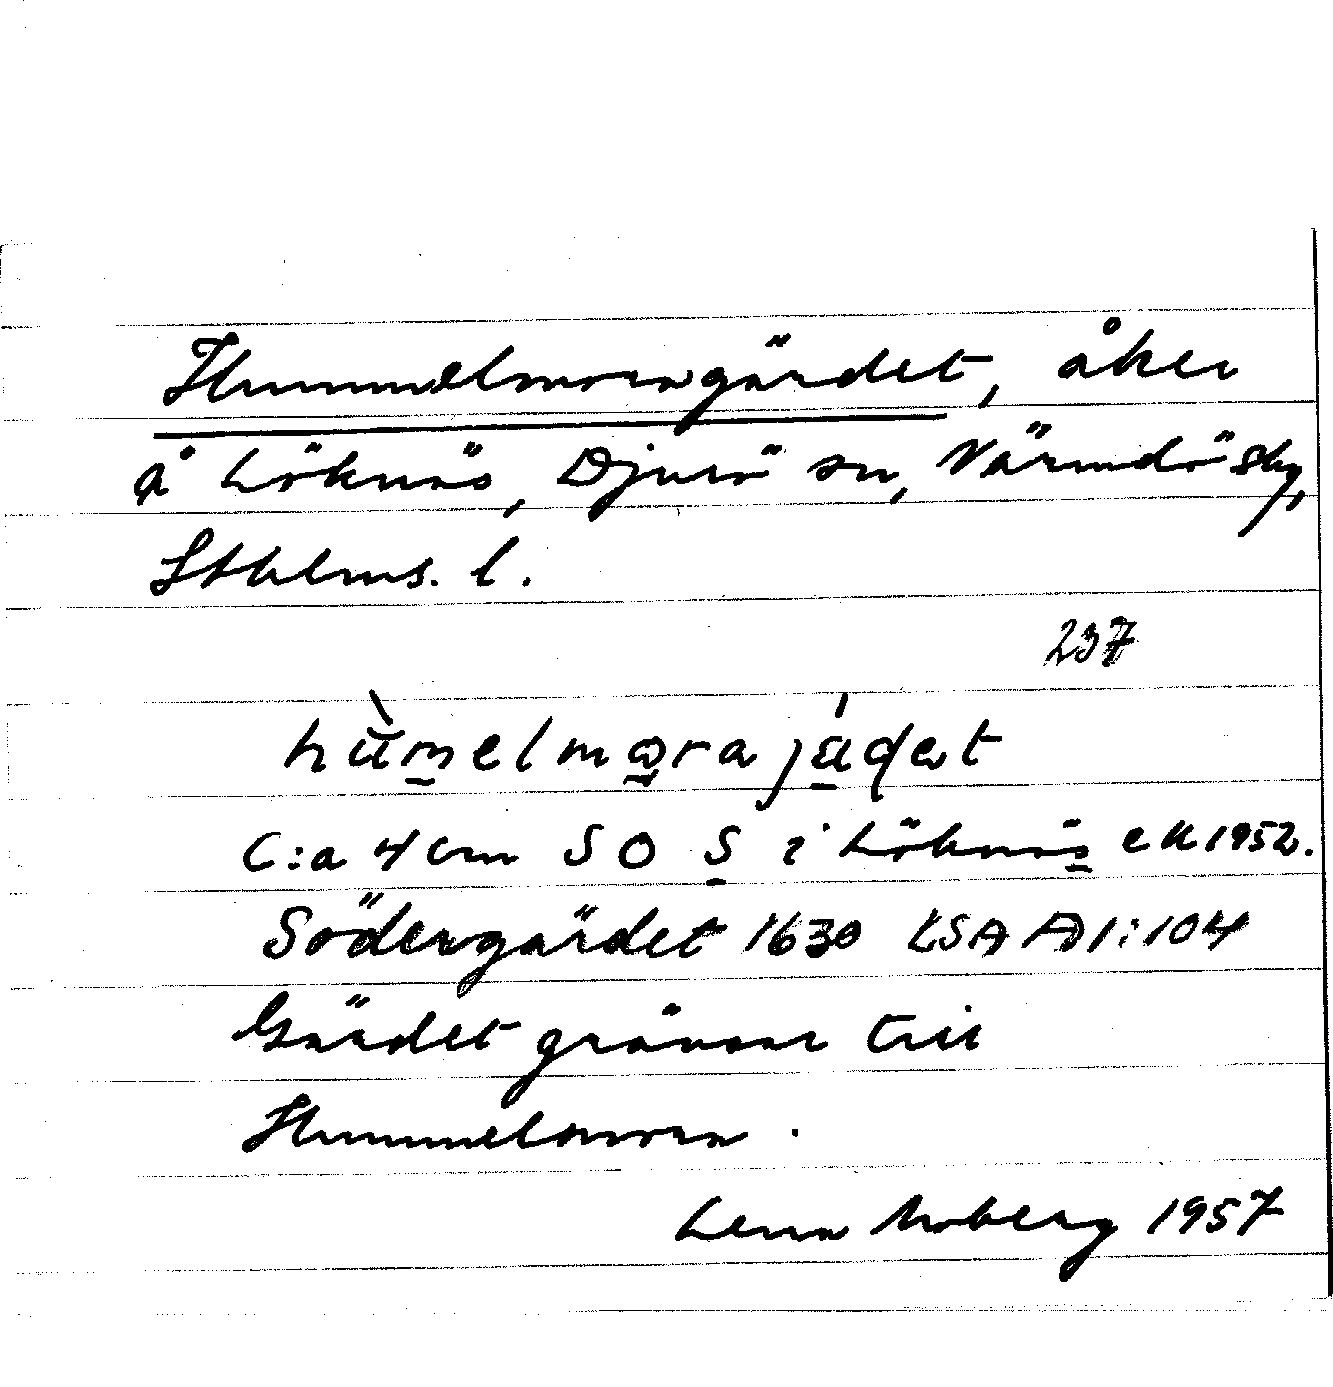 Hummelmoragärdet, åker
å Löknäs, Djurö sn, Värmdö skg,
Sthlms. l.
237
hùmelmωrajádet
C:a 4 cm S O S i Löknäs ek 1952.
Södergärdet 1630 LSA A1:104
Gärdet gränsar till
Hummelmoran.
Lena Moberg 1957